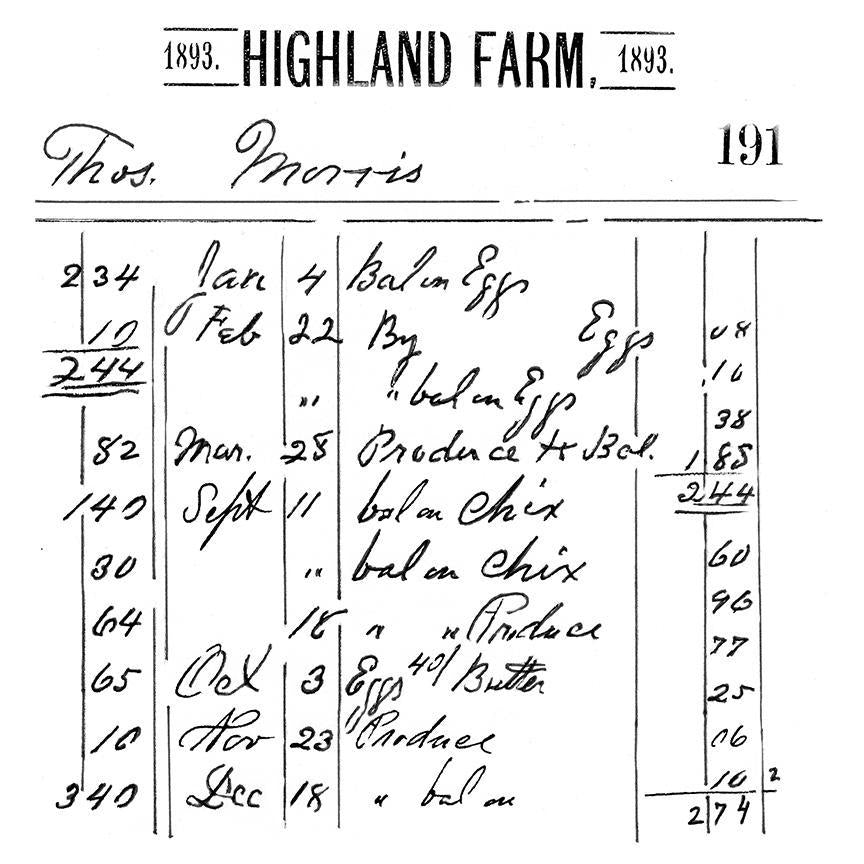 1893. HIGHLAND FARM, 1893.
Thos. Morris 191
2 34 Jan 4 Bal on Eggs
10 Feb 22 By Eggs 08
2 44 " " bal on Eggs .10
38
82 Mar. 28 Produce to Bal. 1 88
1 40 Sept 11 bal on Chix 2 44
30 " bal on Chix 60
96
64 18 " " Produce 77
65 Oct 3 Eggs 40/ Butter 25
10 Nov 23 " Produce 06
3 40 Dec 18 " bal on 10 2
2 74